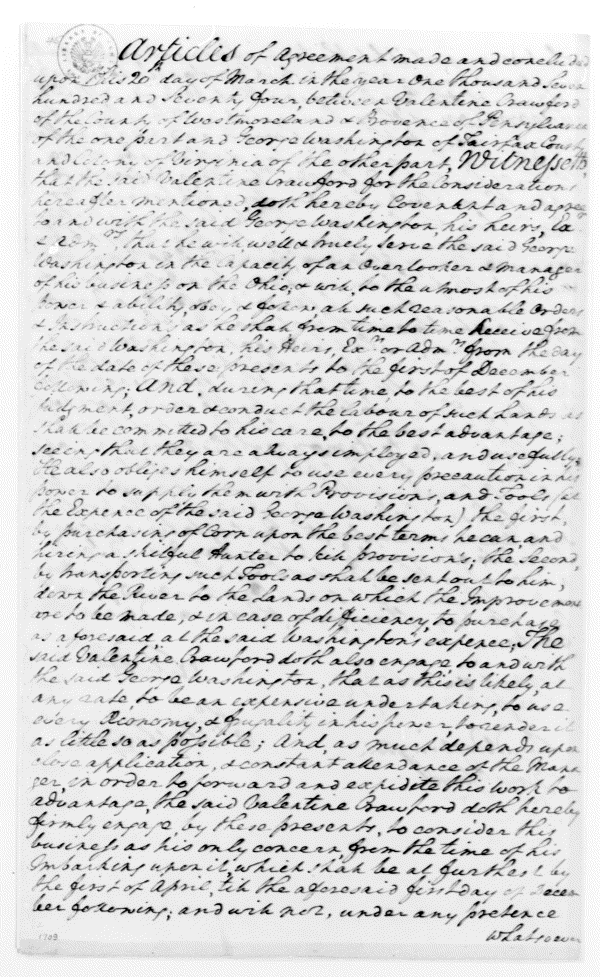 Articles of Agreement made and concluded
upon this 20th day of March in the year One thousand Seven
hundred and Seventy four, between Valentine Crawford
of the County of Westmoreland & Provence of Pensylvania
of the one part and George Washington of Fairfax County
and Colony of Virginia of the other part, Witnesseth,
that the said Valentine Crawford for the Considerations
hereafter mentioned, doth hereby Covenant and agree
to and with the said George Washington, his heirs, Exrs
& Admrs, that he will well & truely serve the said George
Washington in the capacity of an Overlooker & manager
of his business on the Ohio, & will, to the utmost of his
power & ability, obey & follow all such reasonable Orders
& Instructions as he shall from time to time Receive from
the said Washington, his Heirs, Exrs or Admrs from the day
of the date of these presents to the first of December
following; And, during that time, to the best of his
Judgment, order & conduct the labour of such hands as
shall be committed to his care, to the best advantage;
seeing that they are always employed, and usefully;
He also obliges himself to use every precaution in his
power to supply them with Provisions, and Tools (at
the Expence of the said George Washington) the first,
by purchasing of Corn upon the best terms he can, and
hiring a skilful Hunter to kill provisions; the Second,
by transporting such Tools as shall be sent out to him,
down the River to the Lands on which the Improvements
are to be made, & in case of difficiency, to purchase
as aforesaid at the said Washington's expence; The
said Valentine Crawford doth also engage to and with
the said George Washington, that as this is likely, at
any rate, to be an expensive undertaking, to use
every Œconomy, & frugality in his power, to render it
as little so as possible; And, as much depends upon
close application, & constant attendance of the Mana
ger, in order to forward and expidite this work to
advantage, the said Valentine Crawford doth hereby
firmly engage, by these presents, to consider this
business as his only concern from the time of his
Imbarking upon it, which shall be at furthest by
the first of April, till the aforesaid first day of Decem
ber following; and will not, under any pretence
whatsoever
1709